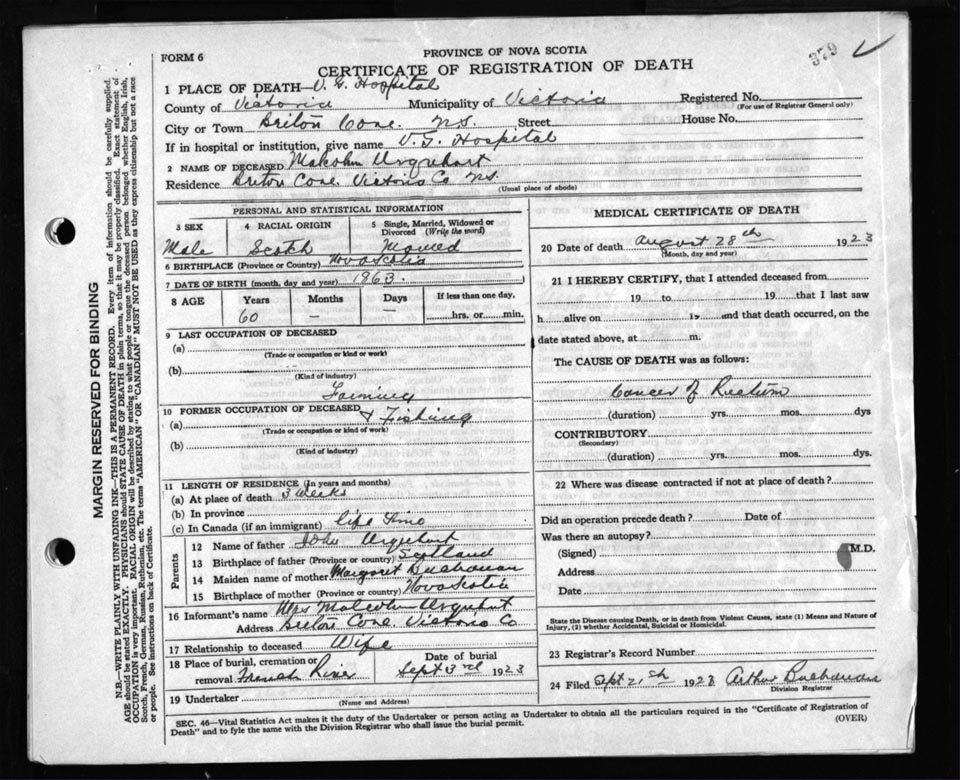 379
FORM 6
PROVINCE OF NOVA SCOTIA
CERTIFICATE OF REGISTRATION OF DEATH
1 PLACE OF DEATH— V. G. Hospital
County of Victoria Municipality of Victoria Registered No.
(For use of Registrar General only)
City or Town Briton Cove. N.S. Street House No.
If in hospital or institution, give name V. G. Hospital
2 NAME OF DECEASED Malcolm Urquhart
Residence Briton Cove. Victoria Co N.S.
(Usual place of abode)
PERSONAL AND STATISTICAL INFORMATION
3 SEX 4 RACIAL ORIGIN 5 Single, Married, Widowed or Divorced (Write the word)
Male Scotch
6 BIRTHPLACE (Province or Country) Nova Scotia
7 DATE OF BIRTH (month, day and year) 1863.
8 AGE Years Months Days If less than one day,
60 — — hrs. or min.
9 LAST OCCUPATION OF DECEASED
(a)
(Trade or occupation or kind or work)
(b)
(Kind of industry)
Farming
10 FORMER OCCUPATION OF DECEASED & Fishing
(a)
(Trade or occupation or kind of work)
(b)
(Kind of industry)
11 LENGTH OF RESIDENCE (In years and months)
(a) At place of death 3 Weeks
(b) In province
(c) In Canada (if an immigrant) life time
Parents
12 Name of father John Urquhart
13 Birthplace of father (Province or country) Scotland
14 Maiden name of mother Margaret Buchanan
15 Birthplace of mother (Province or country) Nova Scotia
16 Informant's name Mrs Malcolm Urquhart
Address Briton Cove. Victoria Co
17 Relationship to deceased Wife
18 Place of burial, cremation or removal French River Date of burial Sept 3rd 1923
19 Undertaker
(Name and Address)
MEDICAL CERTIFICATE OF DEATH
20 Date of death August 28th 1923
(Month, day and year)
21 I HEREBY CERTIFY, that I attended deceased from
19 to 19 that I last saw
h alive on 19 and that death occurred, on the
date stated above, at m.
The CAUSE OF DEATH was as follows:
Cancer of Rectum
(duration) yrs. mos. dys
CONTRIBUTORY
(Secondary)
(duration) yrs. mos. dys.
22 Where was disease contracted if not at place of death?
Did an operation precede death? Date of
Was there an autopsy?
(Signed) M.D.
Address
Date
State the Disease causing Death, or in death from Violent Causes, state (1) Means and Nature of
Injury, (2) whether Accidental, Suicidal or Homicidal.
23 Registrar's Record Number
24 Filed Sept 21st 1923 Arthur Buchanan
Division Registrar
SEC. 46—Vital Statistics Act makes it the duty of the Undertaker or person acting as Undertaker to obtain all the particulars required in the "Certificate of Registration of
Death" and to fyle the same with the Division Registrar who shall issue the burial permit.
(OVER)
MARGIN RESERVED FOR BINDING
N.B.—WRITE PLAINLY WITH UNFADING INK—THIS IS A PERMANENT RECORD. Every item of information should be carefully supplied.
AGE should be stated EXACTLY. PHYSICIANS should STATE CAUSE OF DEATH in plain terms, so that it may be properly classified. Exact statement of
OCCUPATION is very important. RACIAL ORIGIN will be described by stating to what people or tongue the deceased person belonged, whether English, Irish,
Scotch, French, German, Russian, Ruthenian, etc. The terms "AMERICAN" OR "CANADIAN" MUST NOT BE USED as they express citizenship but not a race
or people. See instructions on back of Certificate.